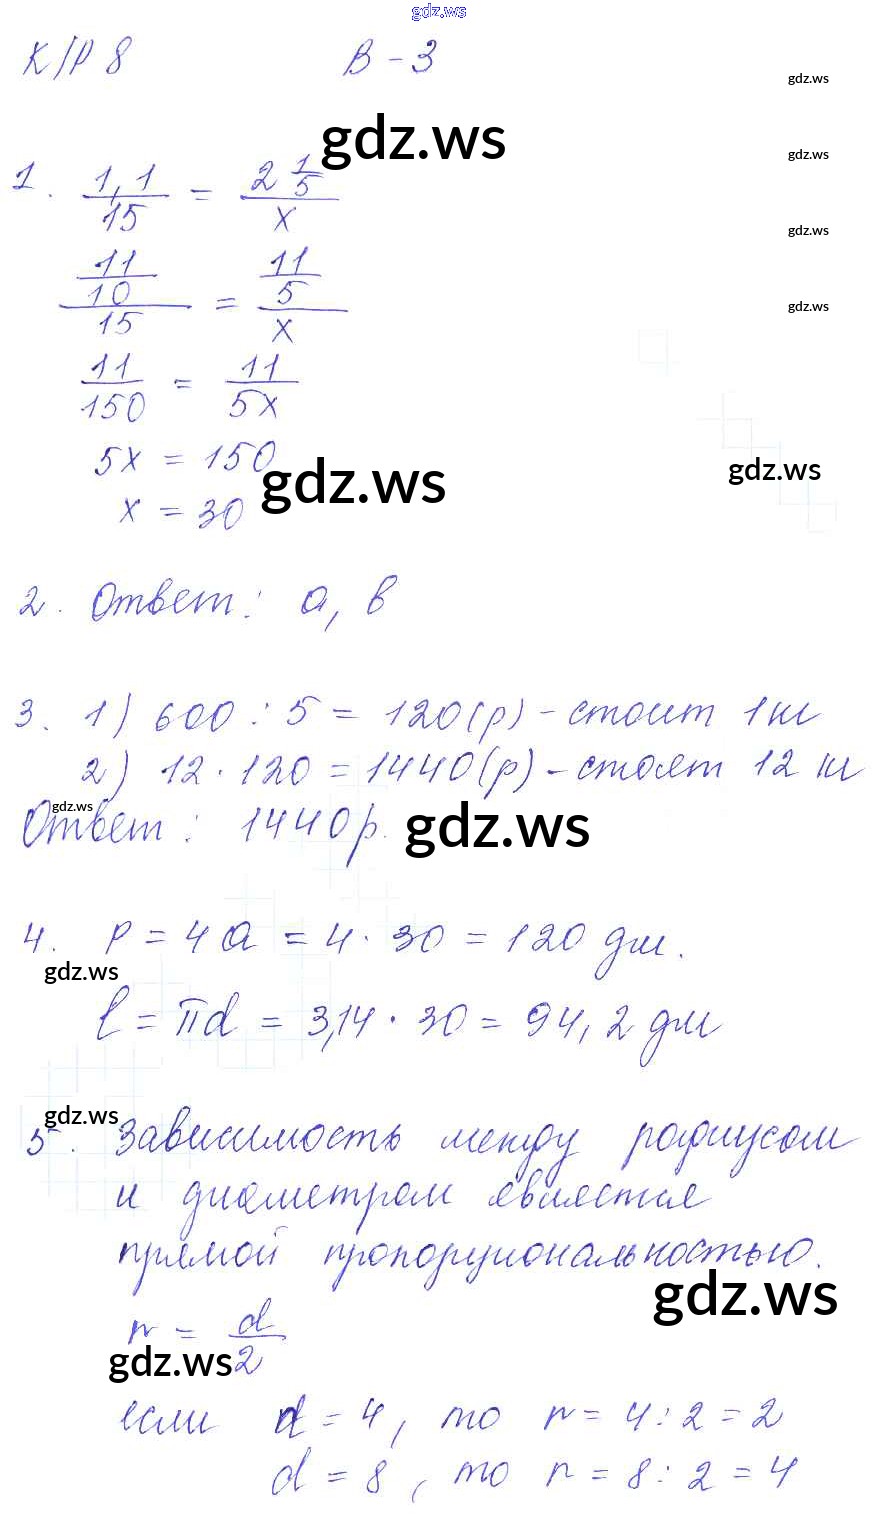 gdz.ws
К/Р 8 В-3
gdz.ws
gdz.ws
1. 1,1/15 = 2 1/5 / x
gdz.ws
gdz.ws
11/10 / 15 = 11/5 / x
gdz.ws
11/150 = 11/5x
5x = 150
gdz.ws
gdz.ws
x = 30
2. Ответ: а, в
3. 1) 600 : 5 = 120(р) - стоит 1 кг
2) 12 · 120 = 1440(р) - стоят 12 кг
gdz.ws
Ответ: 1440р.
gdz.ws
4. P = 4a = 4 · 30 = 120 дм.
gdz.ws
l = πd = 3,14 · 30 = 94,2 дм
gdz.ws
5. Зависимость между радиусом
и диаметром является
прямой пропорциональностью.
gdz.ws
r = d/2
gdz.ws
если d = 4, то r = 4 : 2 = 2
d = 8, то r = 8 : 2 = 4